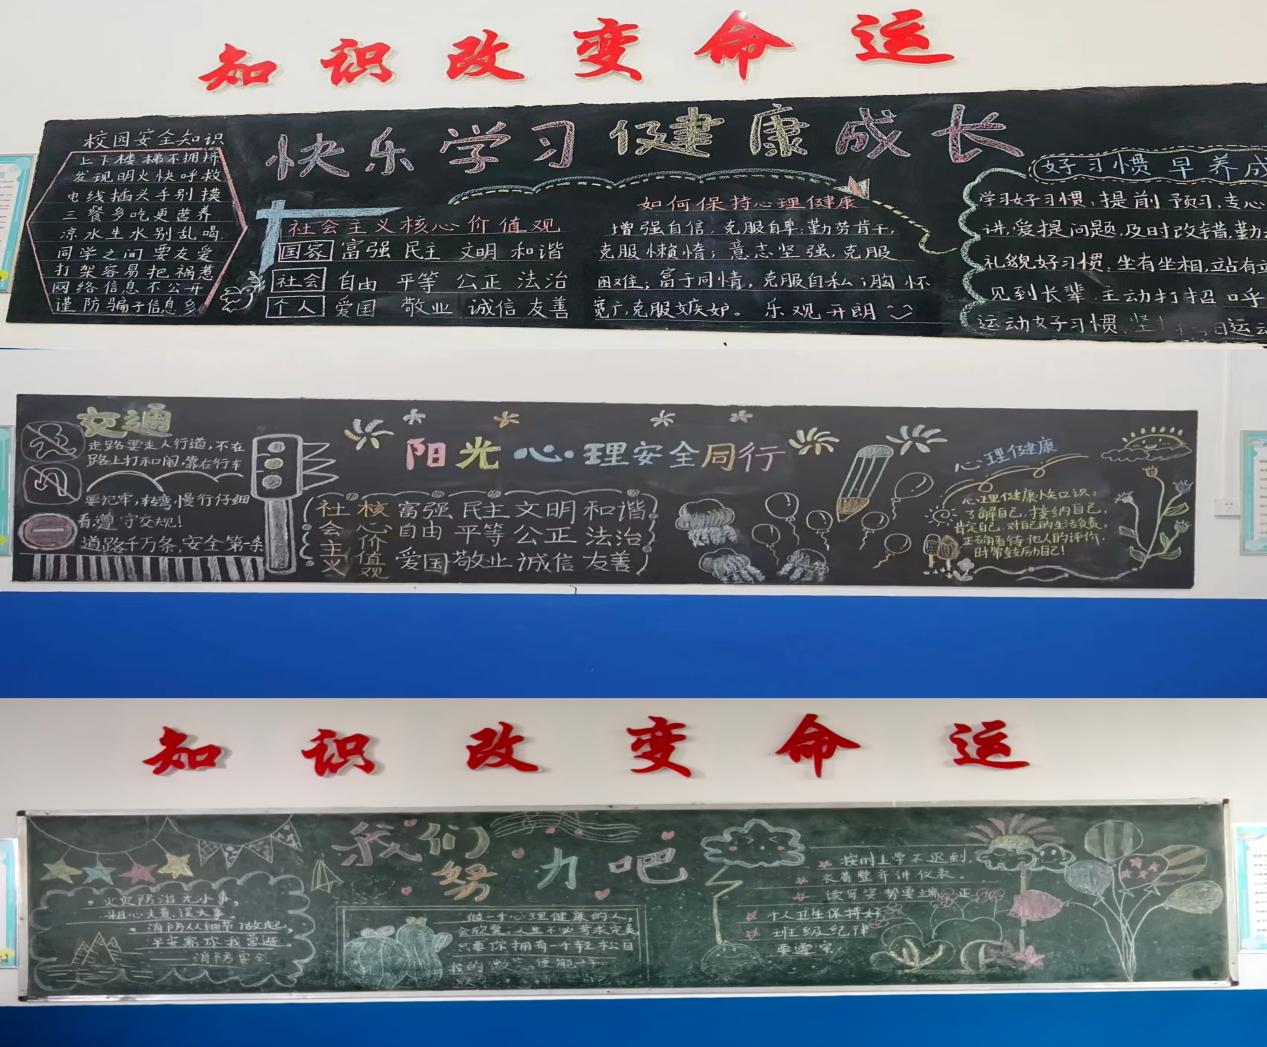 知识改变命运
快乐学习 健康成长
校园安全知识
上下楼梯不拥挤
发现明火快呼救
电线插头手别摸
三餐多吃更营养
凉水生水别乱喝
同学之间要友爱
打架容易把祸惹
网络信息不公开
谨防骗子信息多
社会主义核心价值观
国家 富强 民主 文明 和谐
社会 自由 平等 公正 法治
个人 爱国 敬业 诚信 友善
如何保持心理健康
增强自信,克服自卑;勤劳肯干,
克服懒惰;意志坚强,克服
困难;富于同情,克服自私;胸怀
宽广,克服嫉妒。乐观开朗
好习惯 早养成
学习好习惯,提前预习,专心
讲,爱提问题,及时改错,勤
礼貌好习惯,坐有坐相,站有
见到长辈,主动打招呼
运动好习惯,坚 运动
交通
走路要走人行道,不在
路上打和闹,靠右行车
要记牢,转弯慢行仔细
看,遵守交规!
道路千万条,安全第一条
阳光心理安全同行
社会主义
核心价值观
富强民主文明和谐
自由平等公正法治
爱国敬业诚信友善
心理健康
心理健康快口诀:
了解自己,接纳自己,
肯定自己,对自己的生活负责,
正确看待他人的评价,
时常鼓励自己!
知识改变命运
我们努力吧
火灾防治无小事,
粗心大意误大事
消防从细节做起,
平安系你我
做一个心理健康的人,
会欣赏,人生不必苛求完美
只要你拥有一个轻松自
按时上学不迟到,
衣着整齐讲仪表。
读写姿势要端正
个人卫生保持好
班级纪律
要遵守